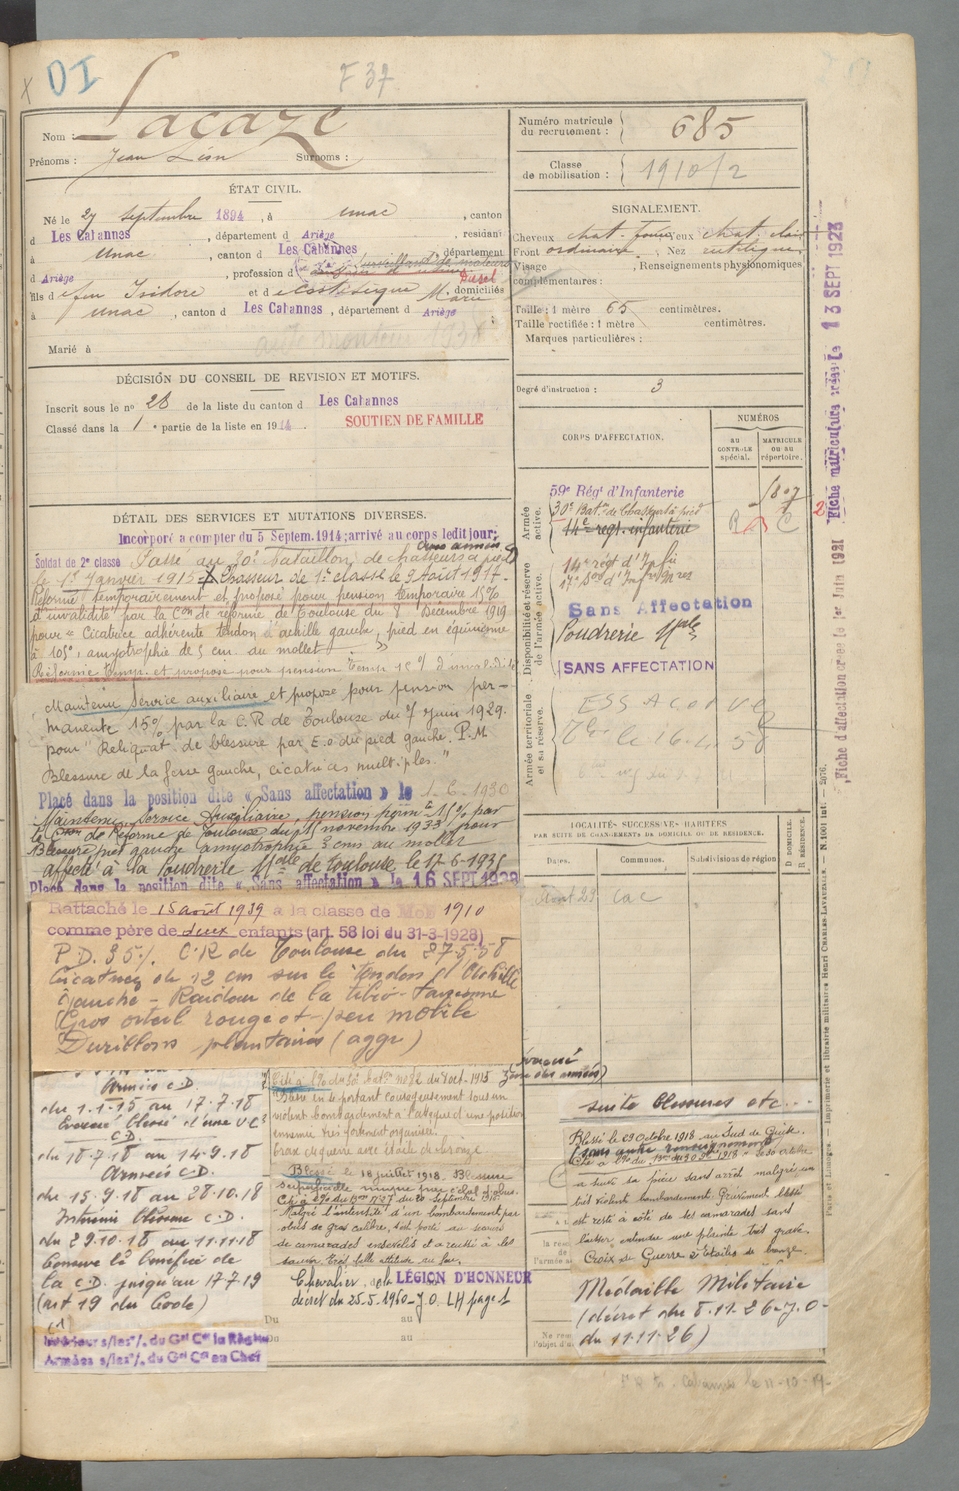 DI
F 37
Nom : Lacaze
Prénoms : Jean Léon Surnoms :
Numéro matricule du recrutement : 685
Classe de mobilisation : 1910/2
ÉTAT CIVIL.
Né le 27 septembre 1894, à Unac, canton
d Les Cabannes, département d Ariège, résidant
à Unac, canton d Les Cabannes, département
d Ariège, profession d surveillant de moteurs Diesel
fils d e feu Isidore et d e Marie domiciliés
à Unac, canton d Les Cabannes, département d Ariège ;
Marié à
aide monteur 1938
SIGNALEMENT.
Cheveux chat. foncé Yeux chat. clair
Front ordinaire, Nez rectiligne
Visage , Renseignements physionomiques
complémentaires :
Taille : 1 mètre 65 centimètres.
Taille rectifiée : 1 mètre centimètres.
Marques particulières :
Degré d'instruction : 3
DÉCISION DU CONSEIL DE REVISION ET MOTIFS.
Inscrit sous le nº 28 de la liste du canton d Les Cabannes
Classé dans la 1 e partie de la liste en 1914.
SOUTIEN DE FAMILLE
CORPS D'AFFECTATION.
NUMÉROS
AU CONTRÔLE spécial.
MATRICULE ou au répertoire.
Armée active.
59e Régt d'Infanterie
30e Batn de Chasseurs à pied
14e régt infanterie
1807
R C
2
Disponibilité et réserve de l'armée active.
14e régt d'Infie
17e Son d'Infrs
Sans Affectation
Poudrerie Nale
SANS AFFECTATION
Armée territoriale et sa réserve.
DÉTAIL DES SERVICES ET MUTATIONS DIVERSES.
Incorporé a compter du 5 Septem. 1914; arrivé au corps ledit jour;
Soldat de 2e classe Passé au 30e Bataillon de chasseurs à pied
le 1er Janvier 1915. Chasseur de 1re classe le 9 Août 1917.
Réformé temporairement et proposé pour pension temporaire 15%
d'invalidité par la Con de réforme de Toulouse du 8 Décembre 1919
pour « Cicatrice adhérente tendon d'achille gauche, pied en équinisme
à 105°, amyotrophie de 5 cm. au mollet. »
Réforme temp. et proposé pour pension temp. 15% d'invalidité
Maintenu Service auxiliaire et proposé pour pension per-
manente 15% par la C.R de Toulouse du 7 Juin 1929.
pour "Reliquat de blessure par E.O. du pied gauche. P.M.
Blessure de la fesse gauche, cicatrices multiples."
Placé dans la position dite « Sans affectation » le 1-6-1930
Maintenu Service Auxiliaire, pension perm te 15% par
la Con de Réforme de Toulouse du novembre 1933 pour
Blessure pied gauche amyotrophie 3 cms au mollet
affecté à la Poudrerie Nale de Toulouse le 17-6-1935
Placé dans la position dite « Sans affectation » le 16 SEPT 1938
Rattaché le 15 août 1939 à la classe de Mob 1910
comme père de deux enfants (art. 58 loi du 31-3-1928)
P.D. 35%. C.R de Toulouse du 27.5.58
Cicatrice de 12 cm sur le tendon d'Achille
Gauche – Raideur de la tibio-tarsienne
Gros orteil rouge et peu mobile
Durillons plantaires (aggr)
LOCALITÉS SUCCESSIVES HABITÉES
PAR SUITE DE CHANGEMENTS DE DOMICILE OU DE RÉSIDENCE.
Dates. Communes. Subdivisions de région
D. DOMICILE. R. RÉSIDENCE.
Armées C.D.
du 1.1.15 au 17.7.18
Evacué blessé d'une U C
C.D.
du 18.7.18 au 14.9.18
Armées C.D.
du 15.9.18 au 28.10.18
Intérieur blessure C.D.
du 29.10.18 au 11.11.18
Conserve le bénéfice de
la C.D. jusqu'au 17.7.19
(art 19 du Code)
Intérieur s/les°/, du Gal Ct la Région
Armées s/les°/, du Gal Ct en Chef
Cité à l'O. du 30e Batn nº 72 du 7 oct. 1915
violent bombardement à l'attaque d'une position
ennemie très fortement organisée.
Croix de guerre avec étoile de bronze.
Blessé le 18 juillet 1918. Blessure
superficielle par éclat d'obus.
Cité à l'O. du Bon nº 27 du 20 septembre 1918.
"Malgré l'intensité d'un bombardement par
obus de gros calibre, s'est porté au secours
de camarades ensevelis et a réussi à les
sauver. Très belle attitude au feu.
Chevalier de la LÉGION D'HONNEUR
décret du 25.5.1960 - J.O. LH page 1
Du au
Du au
suite blessures etc...
Blessé le 29 octobre 1918 au Sud de Guise.
(sans autre renseignement)
a servi sa pièce sans arrêt malgré un
très violent bombardement. Grièvement blessé
est resté à côté de ses camarades sans
laisser entendre une plainte très grave.
Croix de Guerre 2 étoiles de bronze.
Médaille Militaire
(décret du 8.11.26 - J.O.
du 11.11.26)
Fiche matriculaire créée Le 13 SEPT 1923
Imprimerie et librairie militaires Henri CHARLES-LAVAUZELLE.